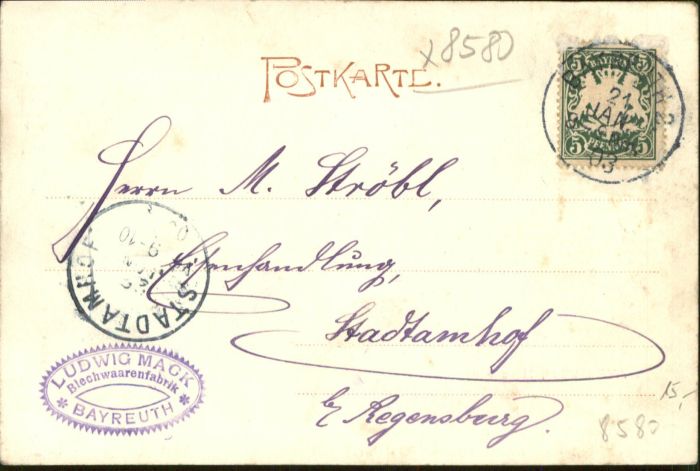 x8580
POSTKARTE.
5 5
21
JAN
03
5 5
Herrn M. Ströbl,
Eisenhandlung,
Stadtamhof
b/ Regensburg.
STADTAMHOF
9-10
LUDWIG MACK
Blechwaarenfabrik
* BAYREUTH *
15,-
8580